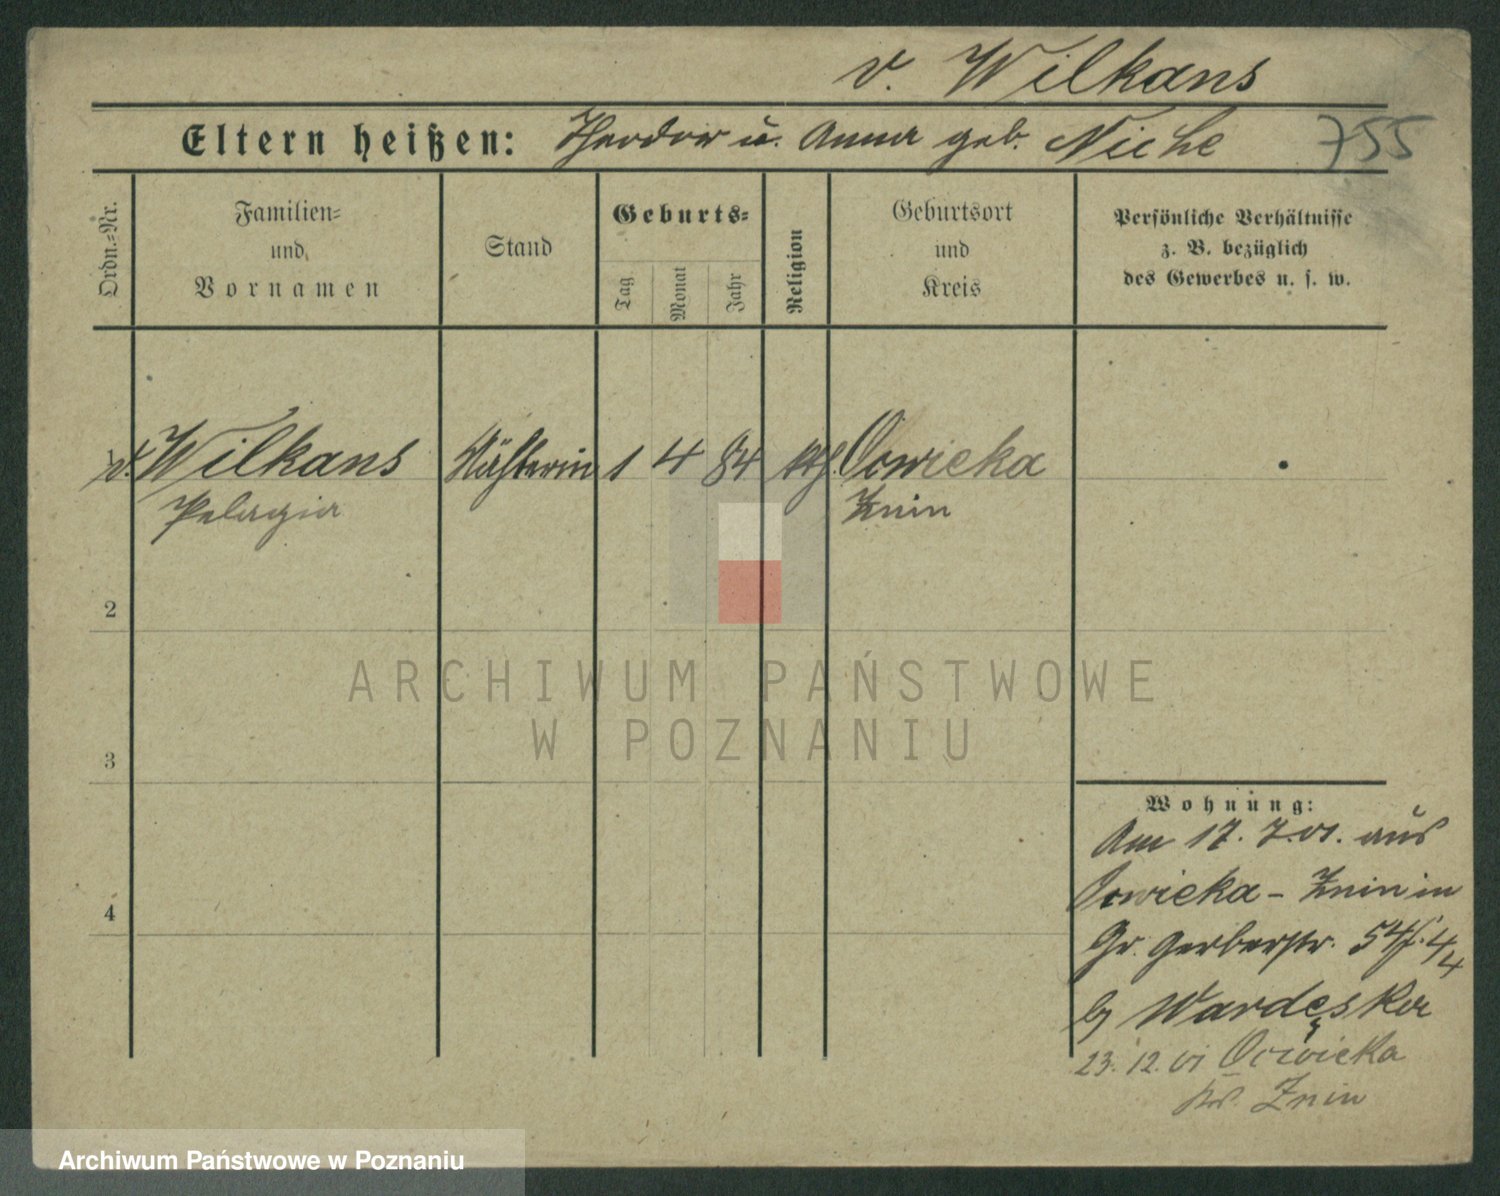 v. Wilkans
Eltern heißen: Theodor u. Anna geb. Niche
755
Ordn.-Nr.
Familien-
und
Vornamen
Stand
Geburts-
Tag
Monat
Jahr
Religion
Geburtsort
und
Kreis
Persönliche Verhältnisse
z. B. bezüglich
des Gewerbes u. s. w.
1 v. Wilkans Nähterin 1 4 84 kth. Ocwieka
Pelagia Znin
2
ARCHIWUM PAŃSTWOWE
W POZNANIU
3
Wohnung:
Am 17. 7. 01. aus
Ocwieka - Znin in
4
Gr. Gerberstr. 54
b/ Wardęska
23. 12. 01 Ocwieka
Kr. Znin
Archiwum Państwowe w Poznaniu